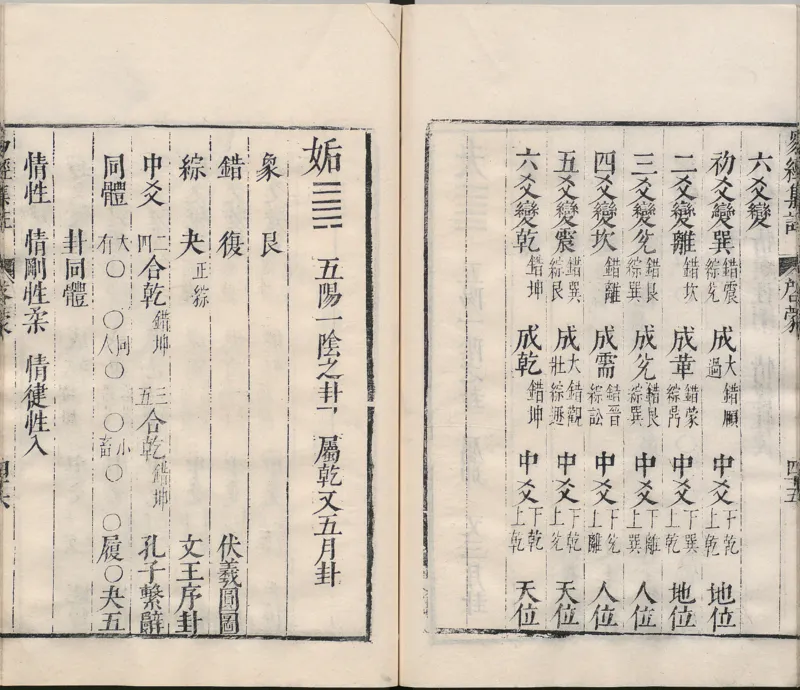 易經集註 啓蒙 四十五
六爻變
初爻變巽 錯震綜兌 成大過 錯頤 中爻 下乾上乾 地位
二爻變離 錯坎 成革 錯蒙綜鼎 中爻 下巽上乾 地位
三爻變兌 錯艮綜巽 成兌 錯艮綜巽 中爻 下離上巽 人位
四爻變坎 錯離 成需 錯晉綜訟 中爻 下兌上離 人位
五爻變震 錯巽綜艮 成大壯 錯觀綜遯 中爻 下乾上兌 天位
六爻變乾 錯坤 成乾 錯坤 中爻 下乾上乾 天位
姤 ䷫ 五陽一陰之卦 屬乾又五月卦
象 艮
錯 復 伏羲圓圖
綜 夬 正綜 文王序卦
中爻 二四合乾錯坤 三五合乾錯坤 孔子繫辭
同體 大有〇 〇同人〇 〇小畜〇 〇履〇夬五
卦同體
情性 情剛性柔 情健性入
易經集註 啓蒙 四十六